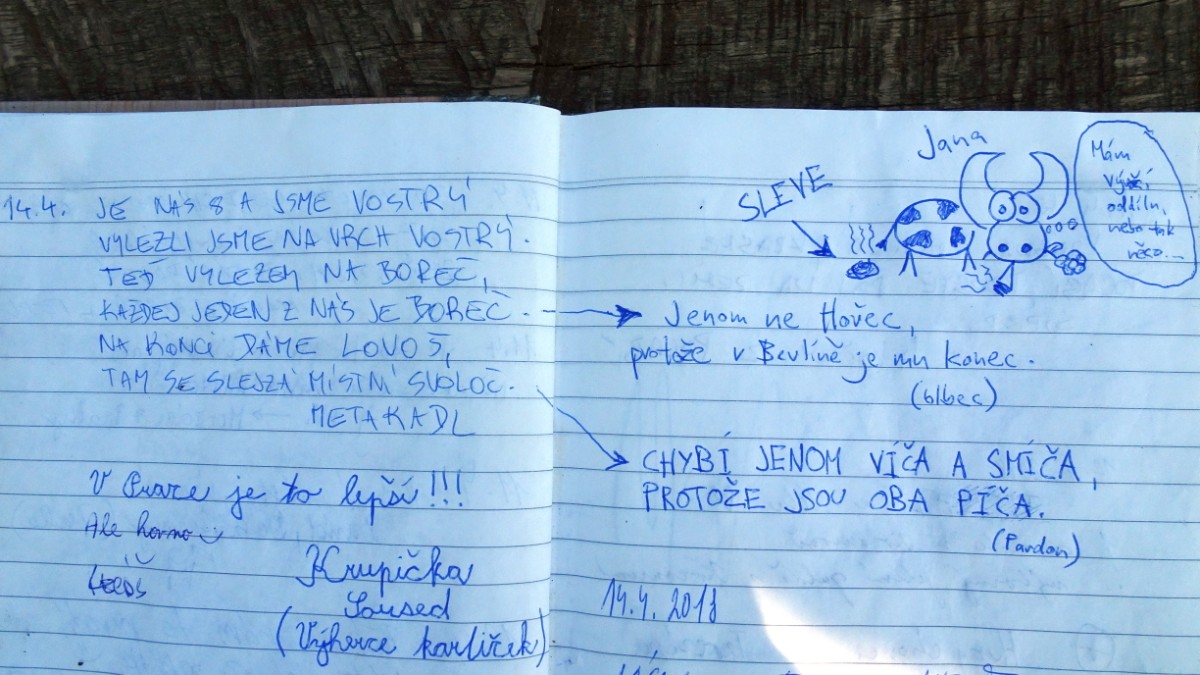 14.4. JE NÁS 8 A JSME VOSTRÝ
VYLEZLI JSME NA VRCH VOSTRÝ.
TEĎ VYLEZEM NA BOREČ,
KAŽDEJ JEDEN Z NÁS JE BOREČ.
NA KONCI DÁME LOVOŠ,
TAM SE SLEJZÁ MÍSTNÍ SVOLOČ.
METAKADL
V Praze je to lepší!!!
Ale horno
Krupička
Soused
(Výherce karlíček)
Jana
SLEVE
Mám
vyšší
oddíln,
nebo tak
něco...
Jenom ne Hovec,
protože v Bevlíně je mu konec.
(blbec)
CHYBÍ JENOM VÍČA A SMÍČA,
PROTOŽE JSOU OBA PÍČA.
(Pardon)
14.4.2018